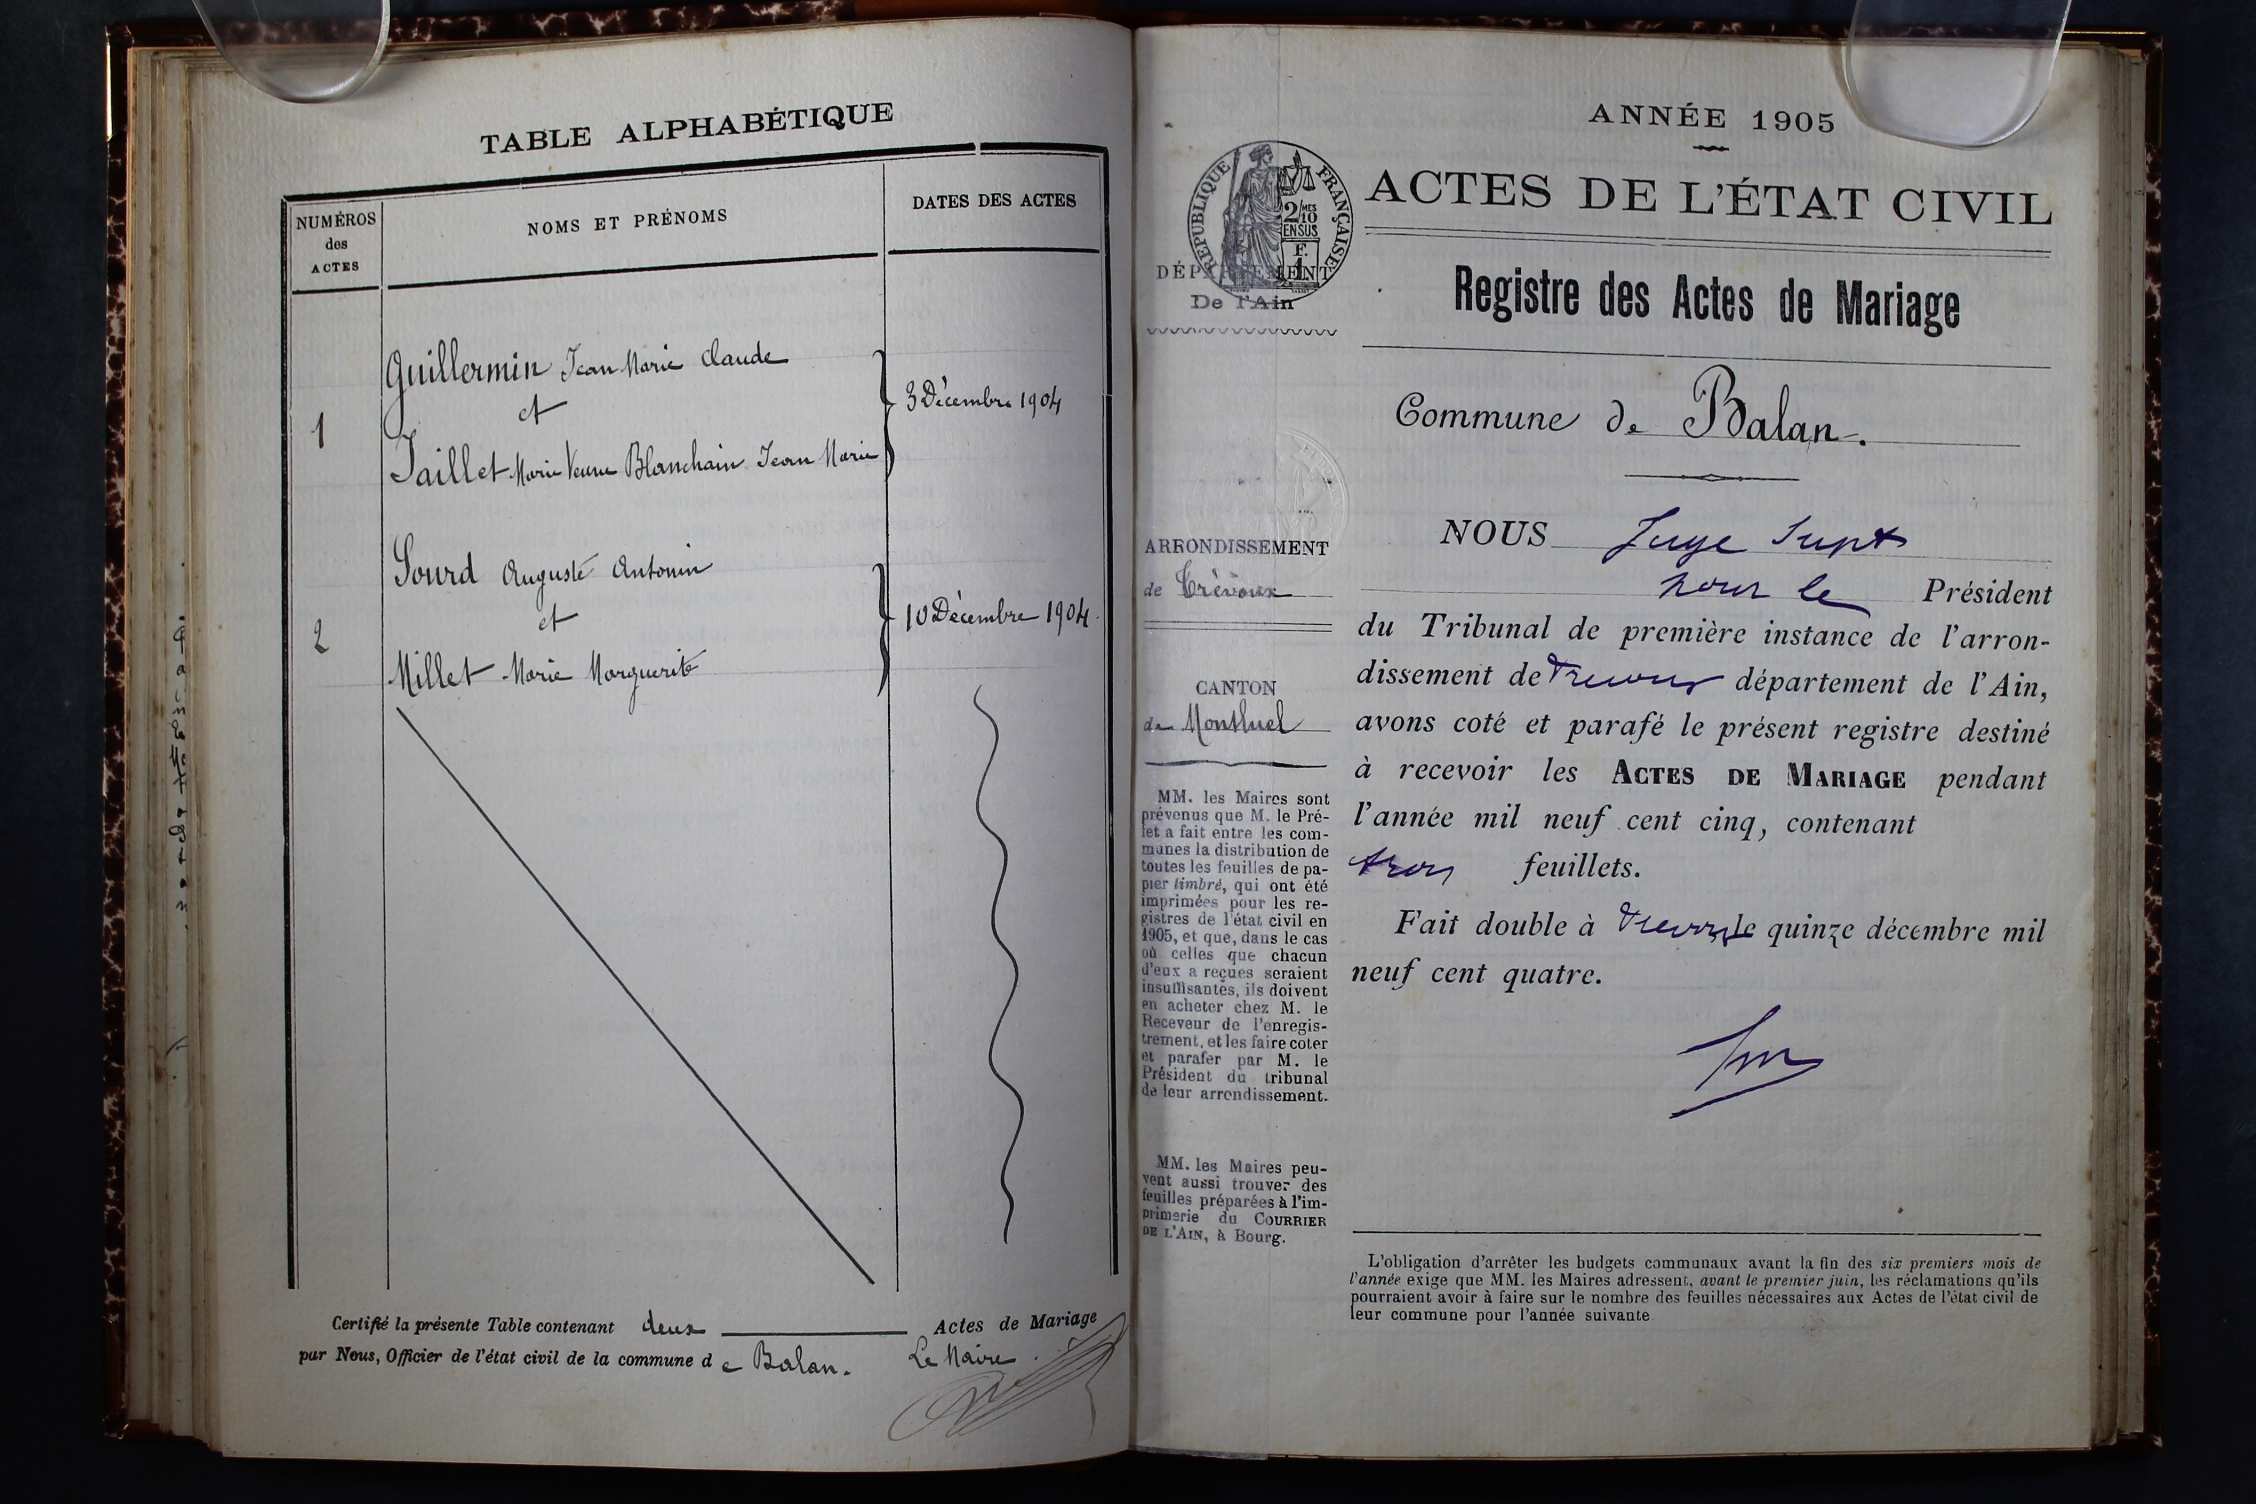 TABLE ALPHABÉTIQUE
NUMÉROS
des
ACTES
NOMS ET PRÉNOMS
DATES DES ACTES
Guillermin Jean Marie Claude
et
1
3 Décembre 1904
Jaillet Marie Veuve Blanchain Jean Marie
Sourd Auguste Antonin
et
2
10 Décembre 1904.
Millet Marie Marguerite
Certifié la présente Table contenant deux Actes de Mariage
par Nous, Officier de l'état civil de la commune de Balan. Le Maire
ANNÉE 1905
ACTES DE L'ÉTAT CIVIL
RÉPUBLIQUE FRANÇAISE
2/10 MES
EN SUS
F.
1
DÉPARTEMENT
De l'Ain
Registre des Actes de Mariage
Commune de Balan.
ARRONDISSEMENT
de Trévoux
CANTON
de Montluel
MM. les Maires sont
prévenus que M. le Pré-
fet a fait entre les com-
munes la distribution de
toutes les feuilles de pa-
pier timbré, qui ont été
imprimées pour les re-
gistres de l'état civil en
1905, et que, dans le cas
où celles que chacun
d'eux a reçues seraient
insuffisantes, ils doivent
en acheter chez M. le
Receveur de l'enregis-
trement, et les faire coter
et parafer par M. le
Président du tribunal
de leur arrondissement.
MM. les Maires peu-
vent aussi trouver des
feuilles préparées à l'im-
primerie du COURRIER
DE L'AIN, à Bourg.
NOUS Juge Supt
pour le Président
du Tribunal de première instance de l'arron-
dissement de Trevoux département de l'Ain,
avons coté et parafé le présent registre destiné
à recevoir les ACTES DE MARIAGE pendant
l'année mil neuf cent cinq, contenant
trois feuillets.
Fait double à Trevoux le quinze décembre mil
neuf cent quatre.
L'obligation d'arrêter les budgets communaux avant la fin des six premiers mois de
l'année exige que MM. les Maires adressent, avant le premier juin, les réclamations qu'ils
pourraient avoir à faire sur le nombre des feuilles nécessaires aux Actes de l'état civil de
leur commune pour l'année suivante